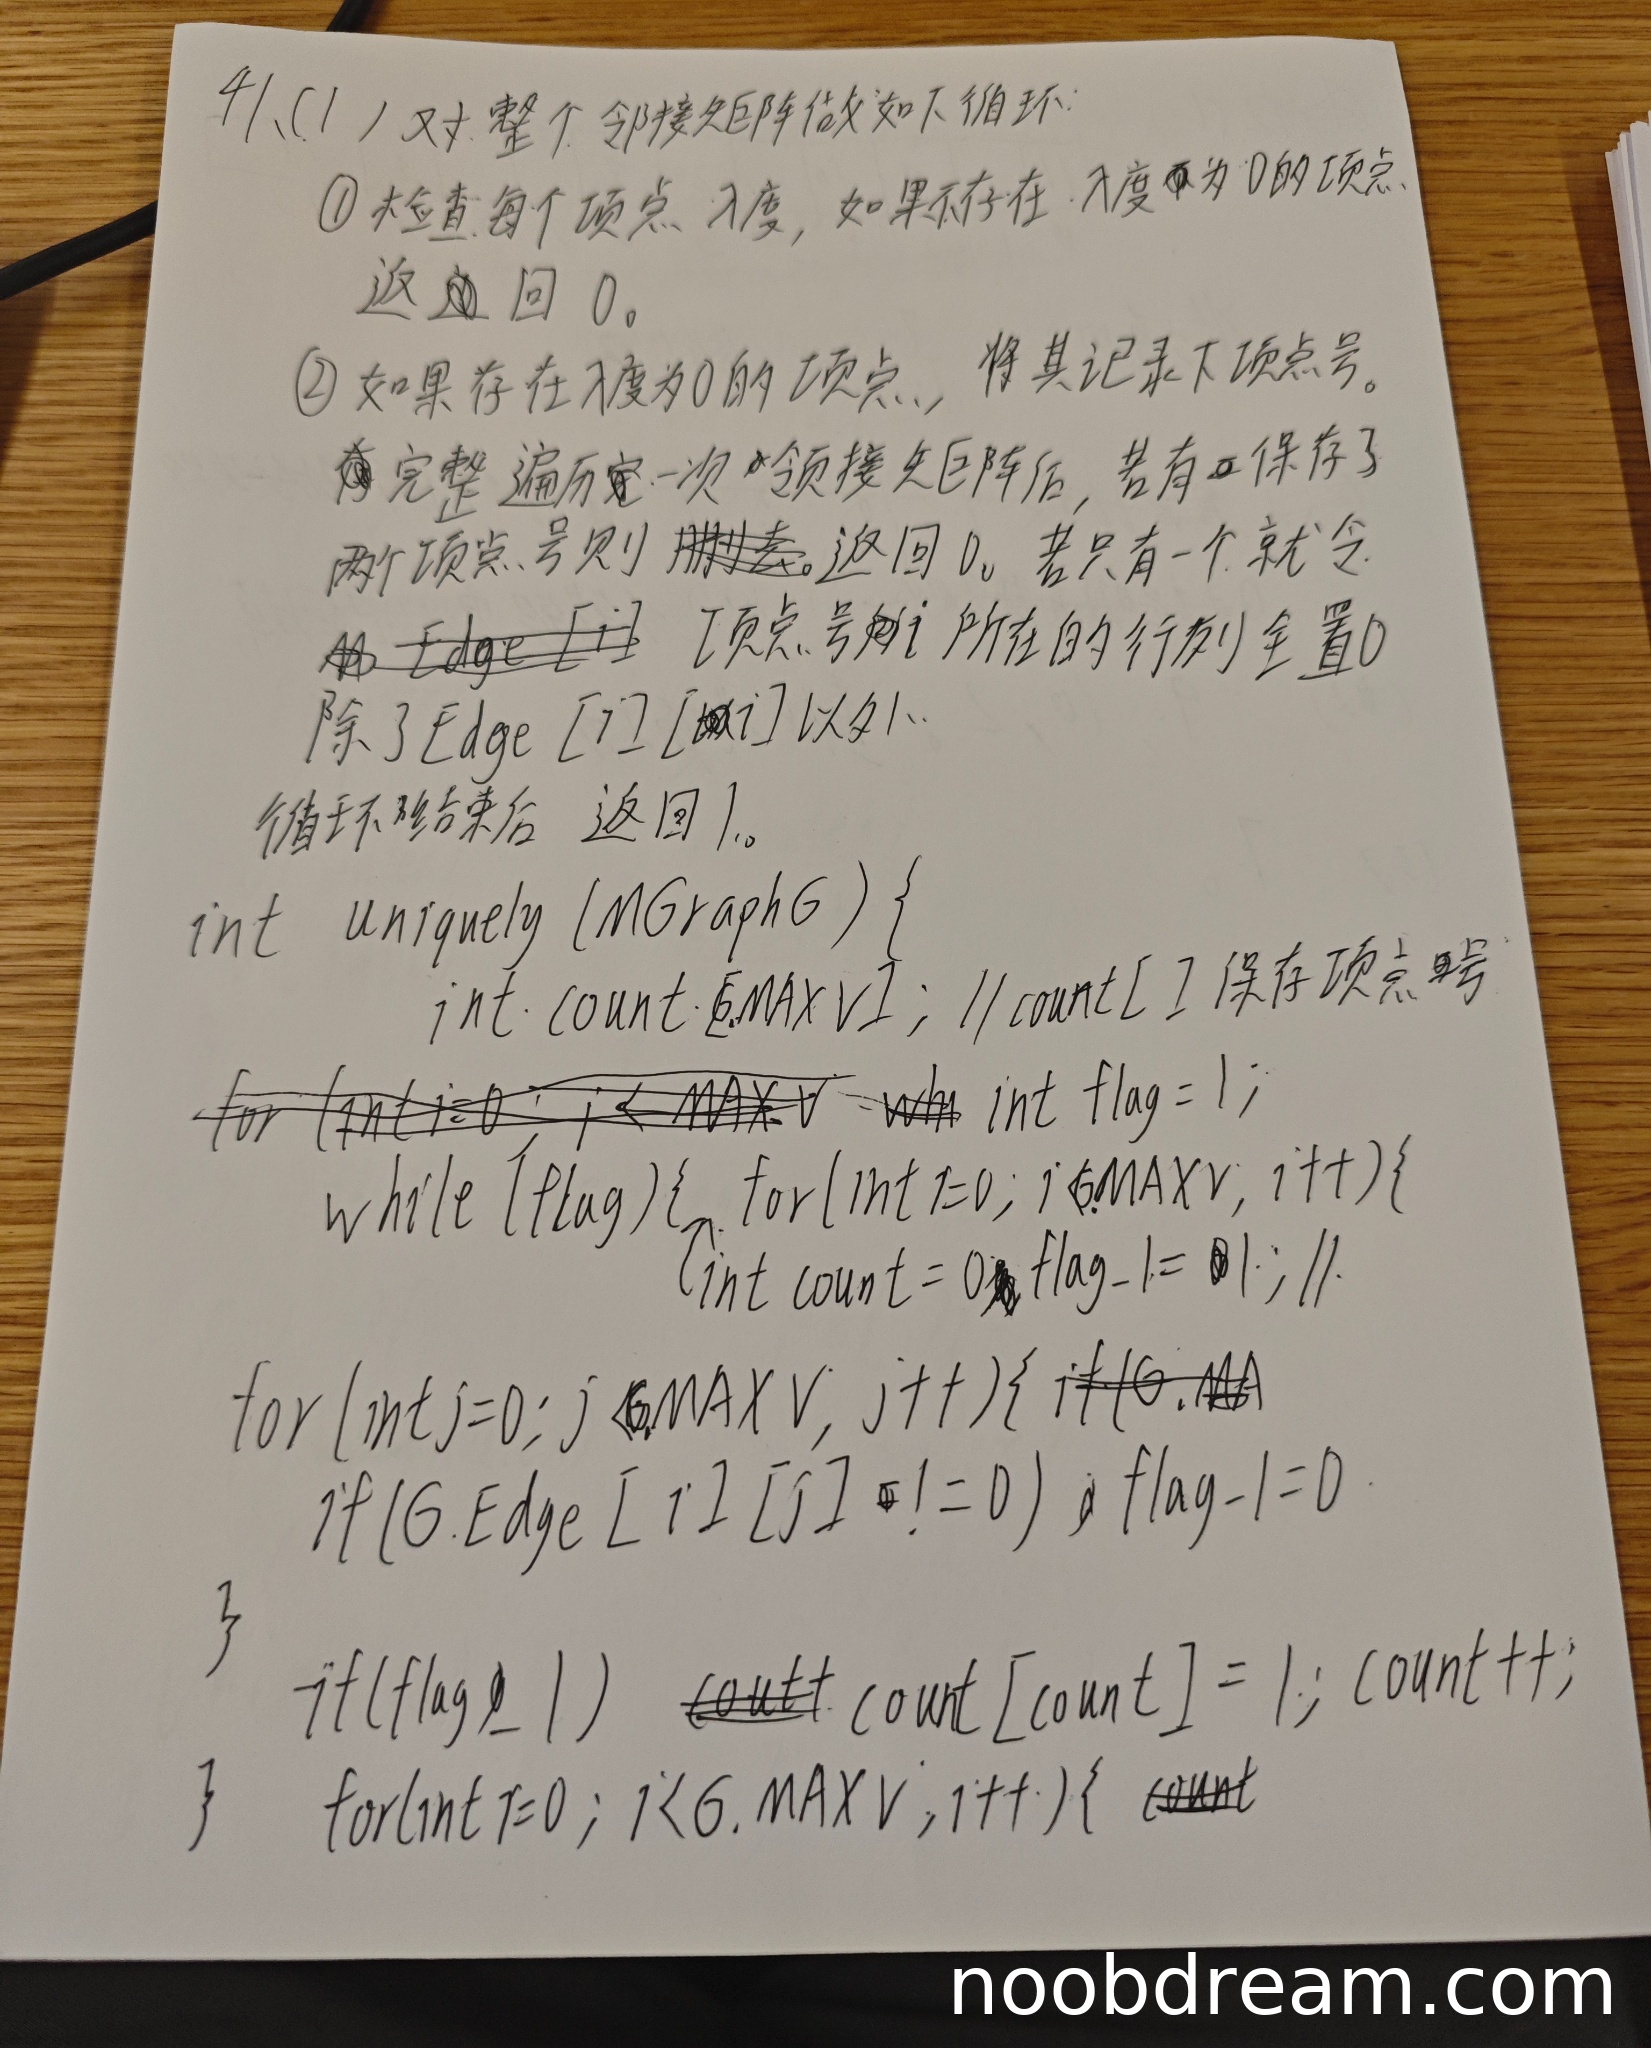 41、(1) 对整个邻接矩阵做如下循环:
① 检查每个顶点入度, 如果不存在入度为0的顶点
返回 0。
② 如果存在入度为0的顶点, 将其记录下顶点号。
完整遍历一次领接矩阵后, 若有保存了
两个顶点号则 删去。返回0。若只有一个就令
Edge [i] 顶点号i所在的行列全置0
除了Edge [i] [i] 以外.
循环结束后 返回1。
int uniquely (MGraphG) {
int count [G.MAXV]; //count[] 保存顶点号
for (int i=0; i < MAXV whi int flag = 1;
while (flag){ for(int i=0; i<G.MAXV, i++){
int count = 0, flag_1 = 1; //
for(int j=0; j<G.MAXV, j++){ if(G.MA
if(G.Edge [i] [j] != 0) flag_1=0
}
if(flag_1) coutt count[count] = 1; count++;
} for(int i=0; i<G.MAXV, i++){ count
noobdream.com